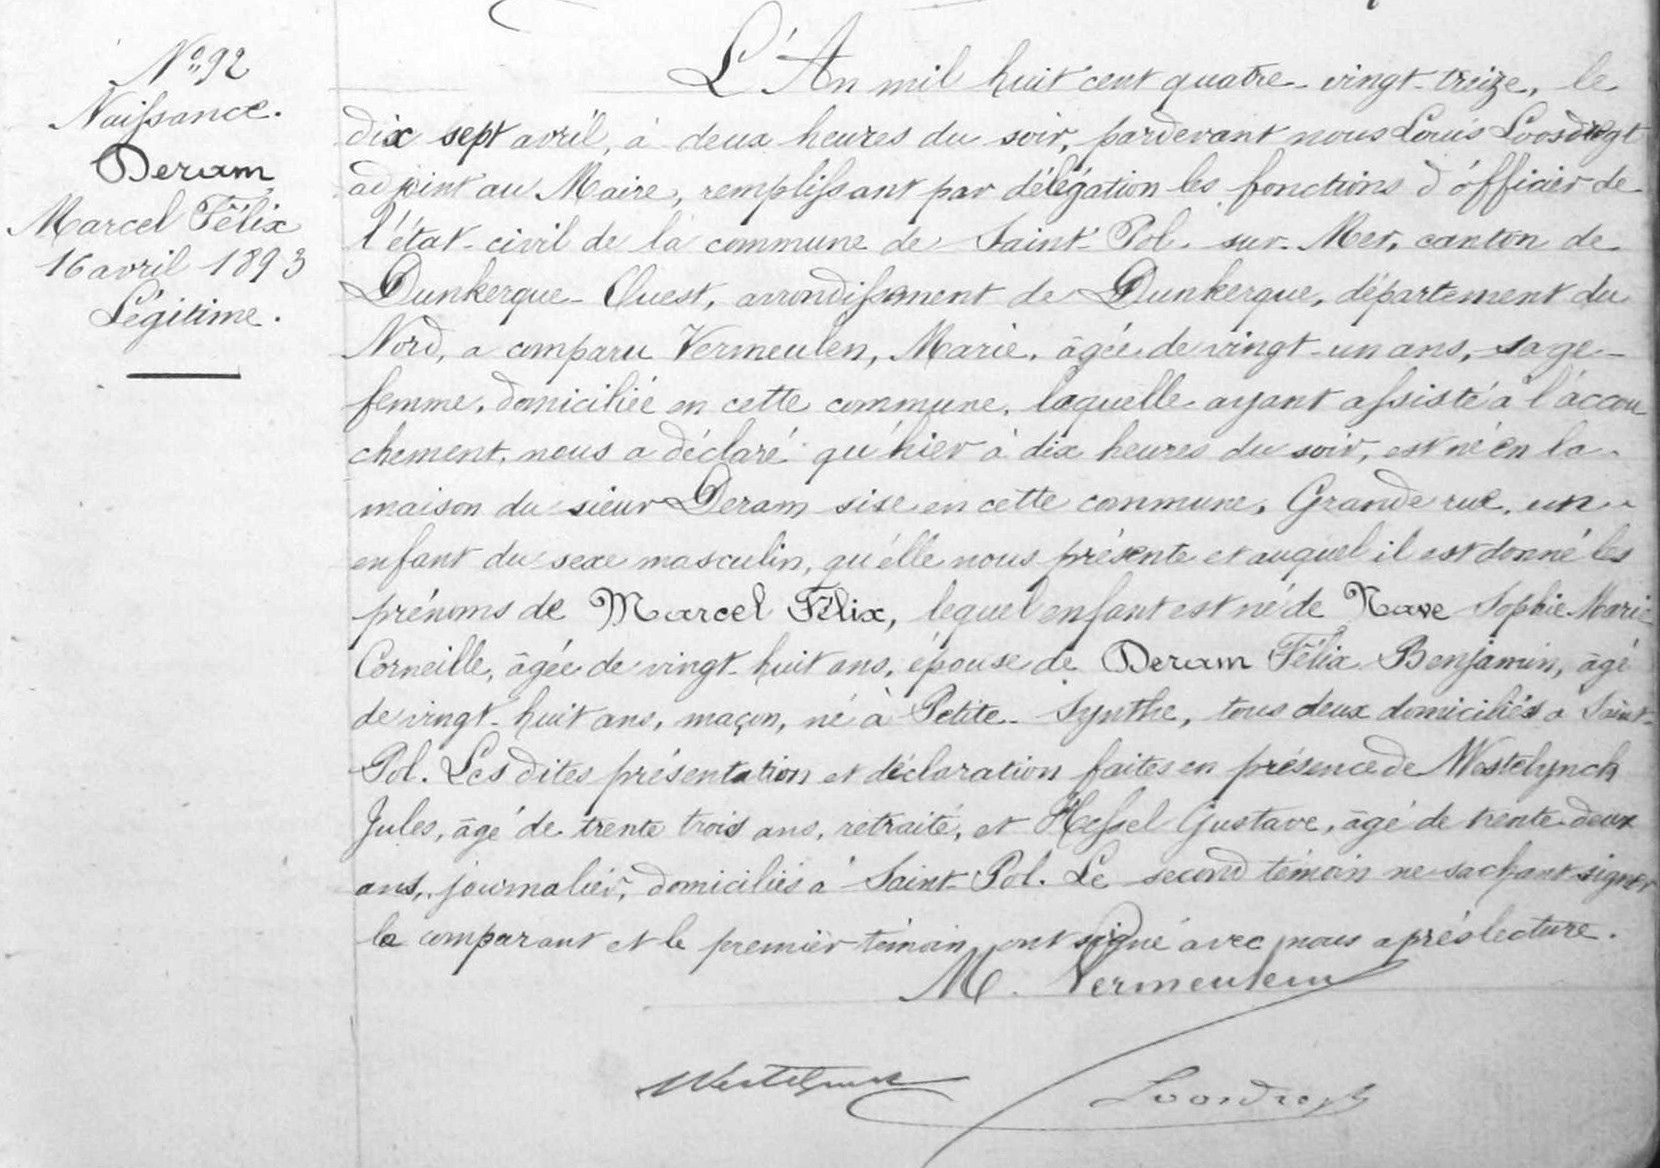 N° 92
Naissance.
Deram
Marcel Félix
16 avril 1893
Légitime.
L'An mil huit cent quatre-vingt-treize, le
dix sept avril, à deux heures du soir, pardevant nous Louis Loosdregt
adjoint au Maire, remplissant par délégation les fonctions d'officier de
l'état-civil de la commune de Saint-Pol-sur-Mer, canton de
Dunkerque-Ouest, arrondissement de Dunkerque, département du
Nord, a comparu Vermeulen, Marie, âgée de vingt-un ans, sage-
femme, domiciliée en cette commune, laquelle ayant assisté à l'accou
chement, nous a déclaré qu'hier à dix heures du soir, est né en la
maison du sieur Deram sise en cette commune, Grande rue, un
enfant du sexe masculin, qu'elle nous présente et auquel il est donné les
prénoms de Marcel Félix, lequel enfant est né de Nave Sophie Marie
Corneille, âgée de vingt-huit ans, épouse de Deram Félix Benjamin, âgé
de vingt-huit ans, maçon, né à Petite-Synthe, tous deux domiciliés à Saint-
Pol. Les dites présentation et déclaration faites en présence de Westelynck
Jules, âgé de trente trois ans, retraité, et Hessel Gustave, âgé de trente-deux
ans, journalier, domiciliés à Saint-Pol. Le second témoin ne sachant signer
la comparant et le premier témoin ont signé avec nous après lecture.
M. Vermeulen
Westelynck
Loosdregt